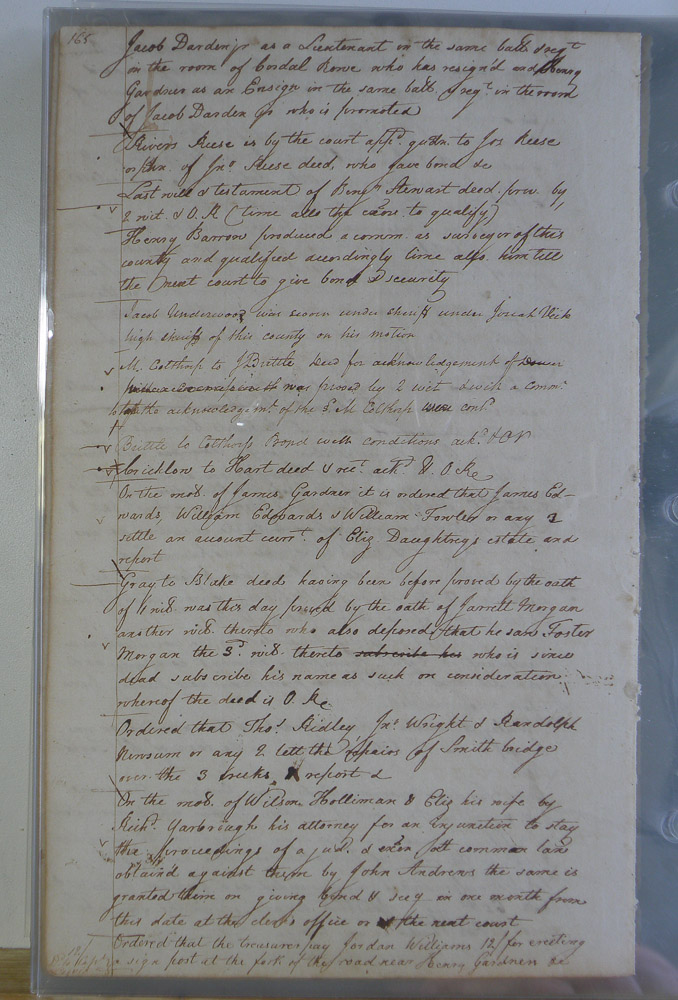 165
Jacob Darden jr as a Lieutenant in the same batt & regt
in the room of Cordal Rowe who has resign'd and Henry
Gardner as an Ensign in the same batt. & regt. in the room
of Jacob Darden Jr who is promoted
Rivers Reese is by the court appt. gdn. to Jos Reese
orphn. of Jno Reese deed. who gave bond &c
Last will & testament of Benjn Stewart deed. prov. by
2 wit & O.R (time allo the exor. to qualify)
Henry Barrow produced a comm. as surveyor of this
county and qualified accordingly time allo. him till
the next court to give bond & security
Jacob Underwood was sworn under sheriff under Josiah Vick
high sheriff of this county on his motion
M. Colthorp to J Brittle Deed for acknowledgement of Dower
was proved by 2 wit & with a commn
the acknowledgemt. of the sd. M Colthorp conf
Brittle to Colthorp Bond with conditions ackd. & OR
Cricklow to Hart deed & rect. ackd & O Re
On the mot. of James Gardner it is ordered that James Ed-
wards, William Edwards & William Fowler or any 2
settle an account currt. of Eliz Daughtreys estate and
report
Gray to Blake deed having been before proved by the oath
of 1 wit. was this day proved by the oath of Jarrett Morgan
another wit. thereto who also deposed that he saw Foster
Morgan the 3d. wit. thereto subscribe his who is since
dead subscribe his name as such on consideration
whereof the deed is O. Re
Ordered that Thos. Ridley Jno Wright & Randolph
Newsum or any 2. lett the repairs of Smith bridge
over the 3 creeks & report &
On the mot. of Wilson Holliman & Eliz his wife by
Richd. Yarborough his attorney for an injunction to stay
the proceedings of a jud. & exon. att common law
obtain'd against them by John Andrews the same is
granted them on giving bond & secy in one month from
this date at the clerks office or the next court
Ordered that the treasurer pay Jordan Williams 12/ for erecting
a sign post at the fork of the road near Henry Gardners &c